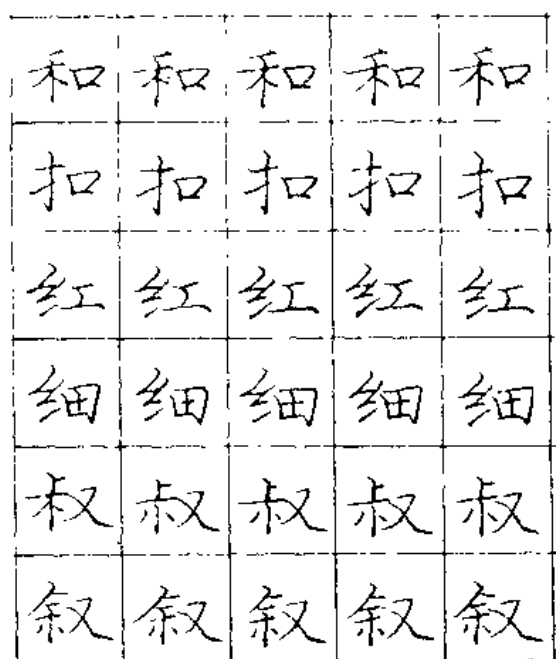 和和和和和
扣扣扣扣扣
红红红红红
细细细细细
叔叔叔叔叔
叙叙叙叙叙